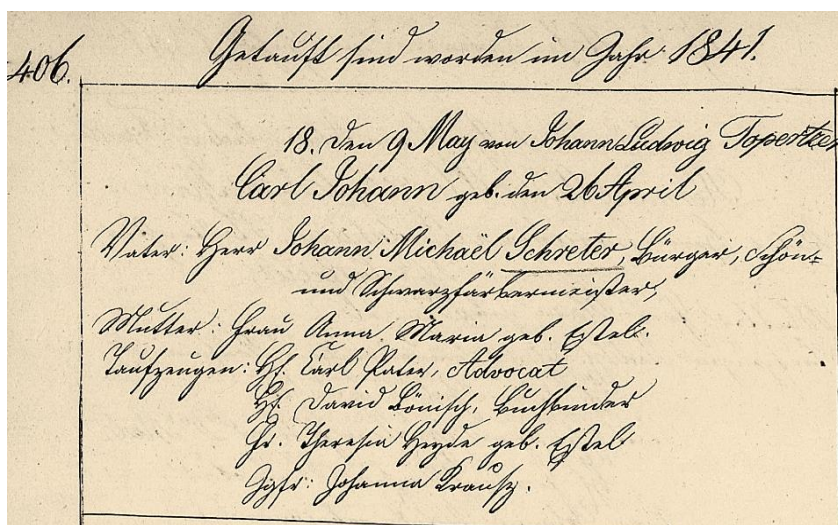 406.
Getauft sind worden im Jahr 1841.
18. Den 9 May von Johann Ludwig Topertzer
Carl Johann geb. den 26 April
Vater: Herr Johann Michaël Schreter, Bürger, Schön=
und Schwarzfärbermeister,
Mutter: Frau Anna Maria geb. Estel.
Taufzeugen: H. Carl Pater, Advocat
H. David Bönisch, Buchbinder
Fr. Theresia Heyde geb. Estel
Jgfr: Johanna Krausz.